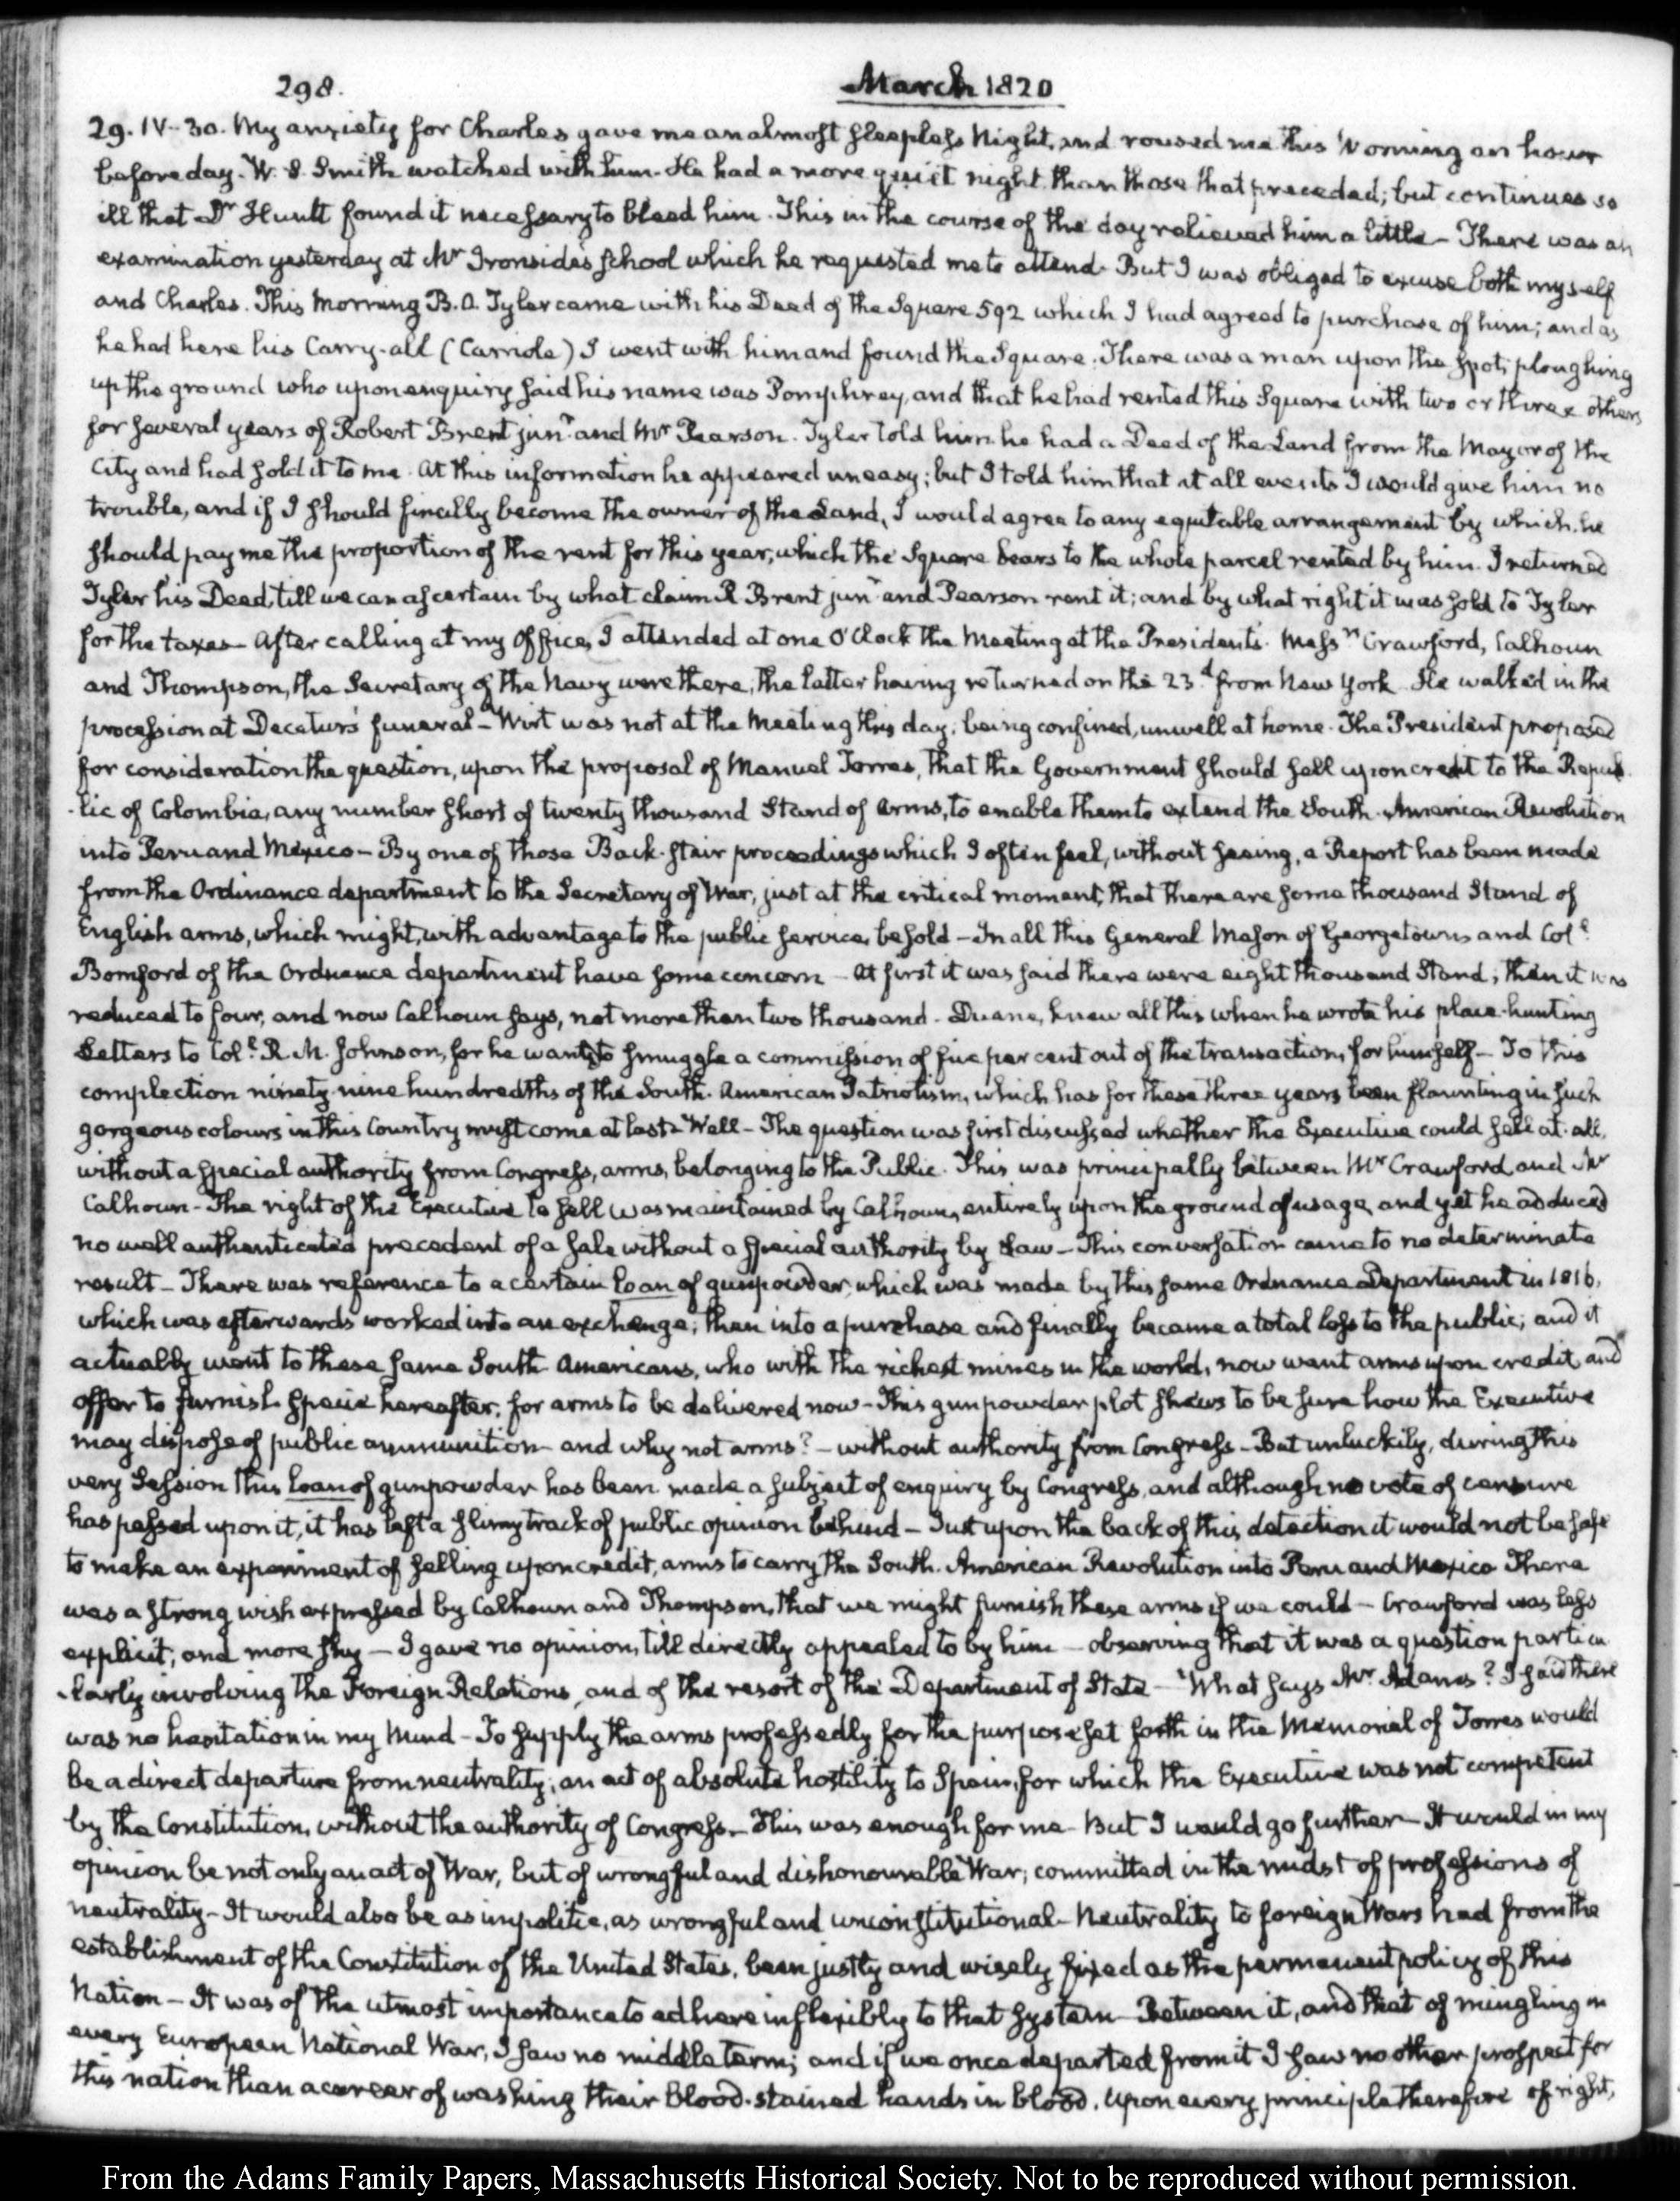 298.
March 1820
29. IV-30. My anxiety for Charles gave me an almost sleepless Night, and roused me this Morning an hour
before day. W. S. Smith watched with him. He had a more quiet night than those that preceded; but continues so
ill that Dr Huntt found it necessary to bleed him. This in the course of the day relieved him a little - There was an
examination yesterday at Mr Ironside's school which he requested me to attend. But I was obliged to excuse both myself
and Charles. This Morning B. O. Tyler came with his Deed of the Square 592 which I had agreed to purchase of him; and as
he had here his Carry-all (Carriole) I went with him and found the Square. There was a man upon the spot, ploughing
up the ground who upon enquiry said his name was Pomphrey, and that he had rented this Square with two or three others
for several years of Robert Brent junr and Mr Pearson. Tyler told him he had a Deed of the Land from the Mayor of the
City and had sold it to me. At this information he appeared uneasy; but I told him that at all events I would give him no
trouble, and if I should finally become the owner of the Land, I would agree to any equitable arrangement by which he
should pay me the proportion of the rent for this year, which the Square bears to the whole parcel rented by him. I returned
Tyler his Deed, till we can ascertain by what claim R Brent junr and Pearson rent it; and by what right it was sold to Tyler
for the taxes - After calling at my Office, I attended at one O'Clock the Meeting at the President's. Messrs Crawford, Calhoun
and Thompson, the Secretary of the Navy were there, the latter having returned on the 23d from New York. He walked in the
procession at Decatur's funeral - Wirt was not at the Meeting this day; being confined, unwell at home. The President proposed
for consideration the question, upon the proposal of Manuel Torres, that the Government should sell upon credit to the Repub
-lic of Colombia, any number short of twenty thousand Stand of Arms, to enable them to extend the South-American Revolution
into Peru and Mexico - By one of those Back-stair proceedings which I often feel, without seeing, a Report has been made
from the Ordinance department to the Secretary of War, just at the critical moment, that there are some thousand Stand of
English arms, which might, with advantage to the public service, be sold - In all this General Mason of Georgetown and Coll
Bomford of the Ordnance department have some concern - At first it was said there were eight thousand Stand; then it was
reduced to four, and now Calhoun says, not more than two thousand. Duane, knew all this when he wrote his place-hunting
Letters to Coll R. M. Johnson, for he wants to smuggle a commission of five per cent out of the transaction, for himself - To this
complection ninety-nine hundredths of the South-American Patriotism, which has for these three years been flaunting in such
gorgeous colours in this Country must come at last - Well - The question was first discussed whether the Executive could sell at all,
without a special authority from Congress, arms, belonging to the Public. This was principally between Mr Crawford and Mr
Calhoun - The right of the Executive to sell was maintained by Calhoun, entirely upon the ground of usage, and yet he adduced
no well authenticated precedent of a sale without a special authority by Law - This conversation came to no determinate
result - There was reference to a certain loan of gunpowder, which was made by this same Ordnance Department in 1816,
which was afterwards worked into an exchange; then into a purchase and finally became a total loss to the public; and it
actually went to these same South Americans, who with the richest mines in the world, now want arms upon credit, and
offer to furnish specie hereafter, for arms to be delivered now - This gunpowder plot shews to be sure how the Executive
may dispose of public ammunition - and why not arms? - without authority from Congress - But unluckily, during this
very Session this loan of gunpowder has been made a subject of enquiry by Congress, and although no vote of censure
has passed upon it, it has left a slimy track of public opinion behind - Just upon the back of this detection it would not be safe
to make an experiment of selling upon credit, arms to carry the South-American Revolution into Peru and Mexico. There
was a strong wish expressed by Calhoun and Thompson, that we might furnish these arms if we could - Crawford was less
explicit, and more shy - I gave no opinion, till directly appealed to by him - observing that it was a question particu
-larly involving the Foreign Relations, and of the resort of the Department of State - "What says Mr Adams? I said there
was no hesitation in my Mind - To supply the arms professedly for the purpose set forth in the Memorial of Torres would
be a direct departure from neutrality; an act of absolute hostility to Spain, for which the Executive was not competent
by the Constitution, without the authority of Congress - This was enough for me - But I would go further - It would in my
opinion be not only an act of War, but of wrongful and dishonourable War; committed in the midst of professions of
neutrality - It would also be as impolitic, as wrongful and unconstitutional - Neutrality to foreign Wars had from the
establishment of the Constitution of the United States, been justly and wisely fixed as the permanent policy of this
Nation - It was of the utmost importance to adhere inflexibly to that system - Between it, and that of mingling in
every European National War, I saw no middle term; and if we once departed from it I saw no other prospect for
this nation than a career of washing their blood-stained hands in blood. Upon every principle therefore of right,
From the Adams Family Papers, Massachusetts Historical Society. Not to be reproduced without permission.